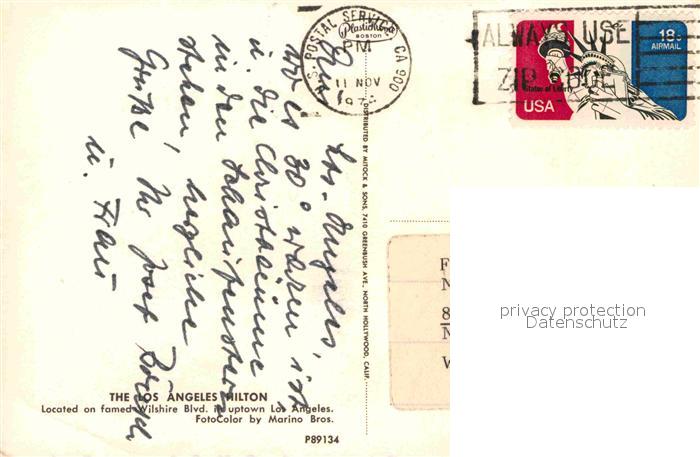 U.S. POSTAL SERVICE CA 900
PM
11 NOV
Plastichrome
BOSTON
ALWAYS USE
ZIP CODE
18c
AIRMAIL
Statue of Liberty
USA
Los-Angeles,
wo es 30° waren ist
u. die Christbäume
in den Schaufenstern
stehen, herzliche
Grüße Ihr Josef
u. Frau
DISTRIBUTED BY MITOCK & SONS, 7410 GREENBUSH AVE., NORTH HOLLYWOOD, CALIF.
F
N
8
N
W
privacy protection
Datenschutz
THE LOS ANGELES HILTON
Located on famed Wilshire Blvd. in uptown Los Angeles.
FotoColor by Marino Bros.
P89134